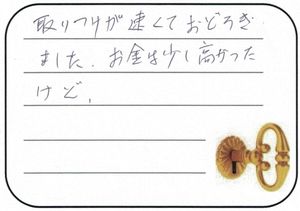 取りつけが速くておどろき
ました。お金は少し高かった
けど、